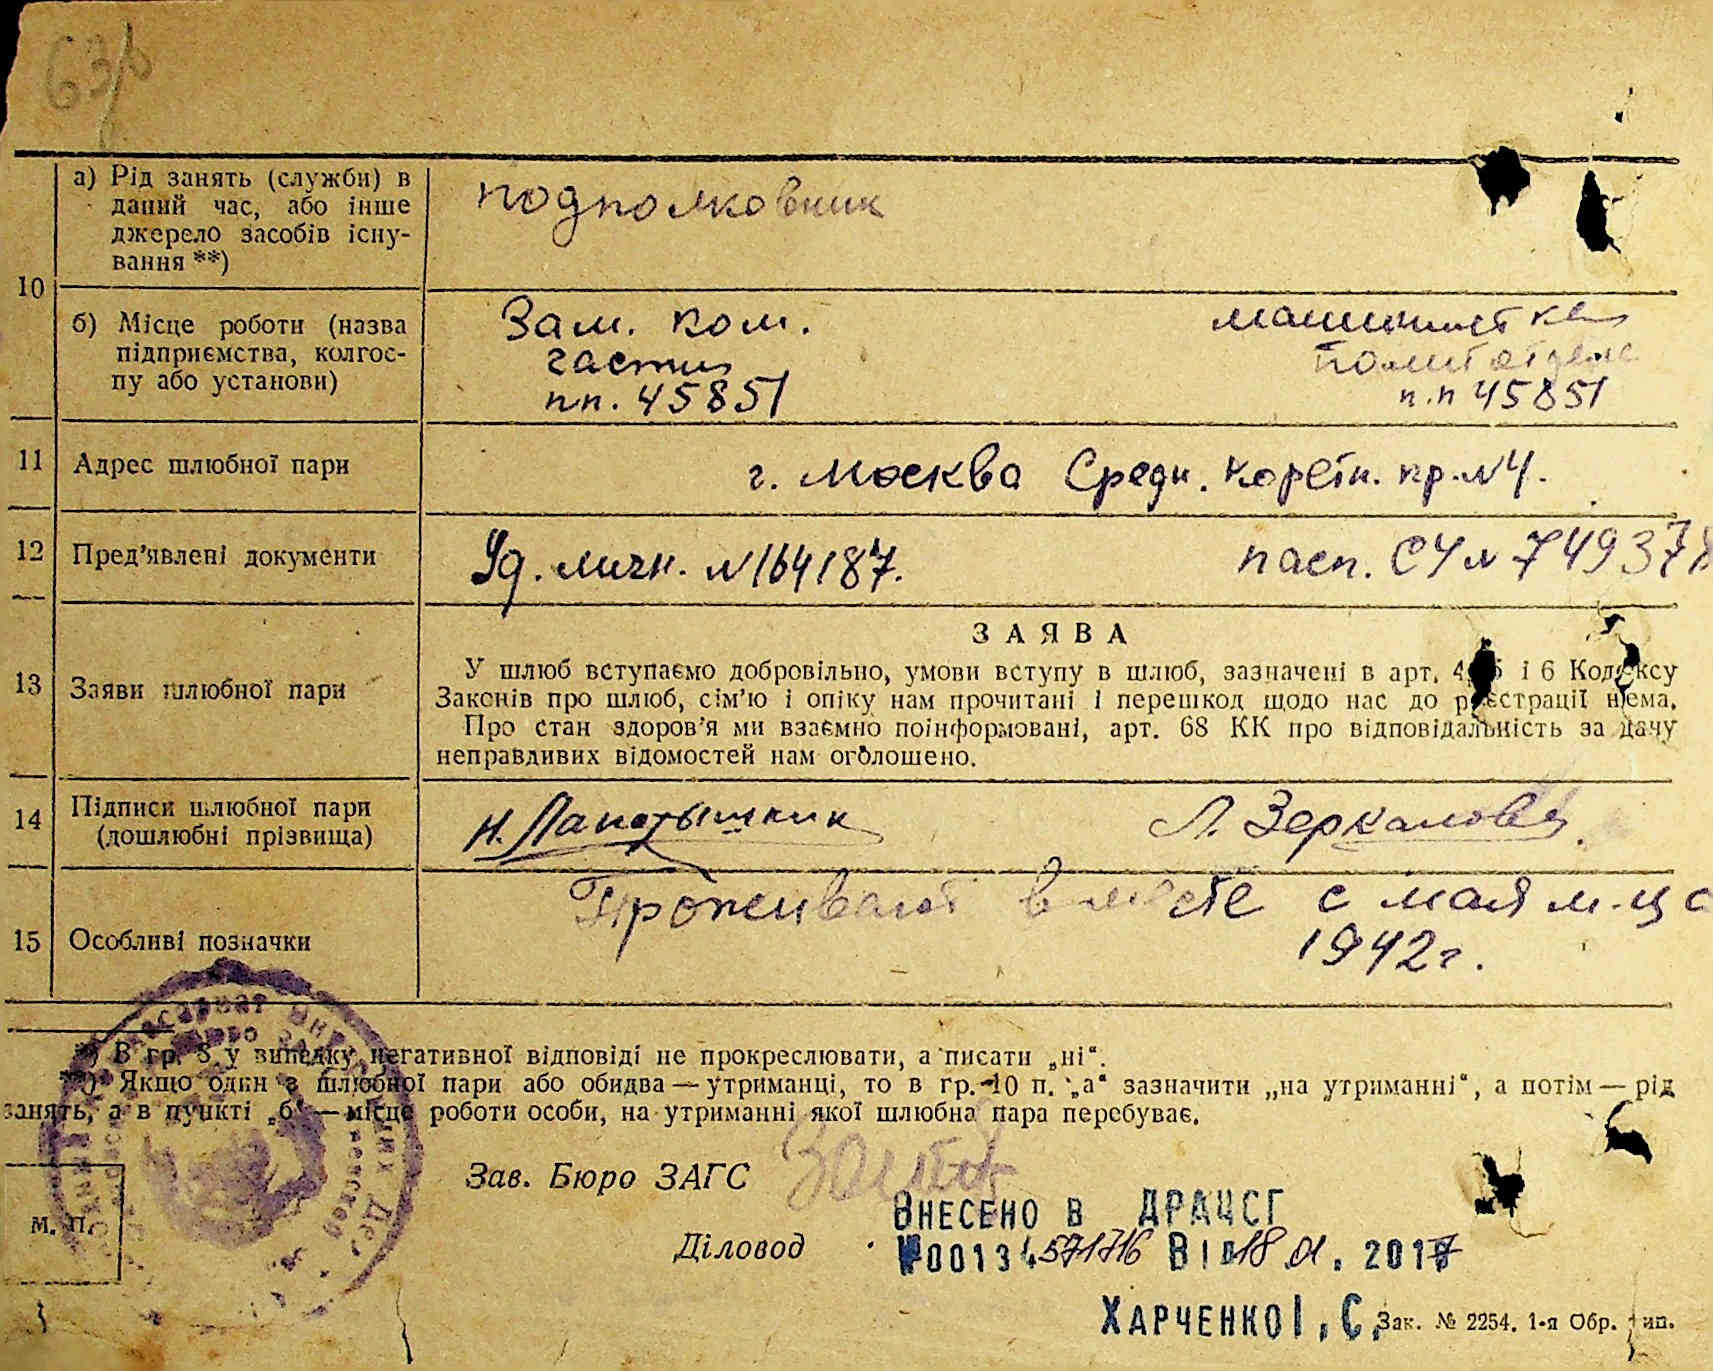 63
а) Рід занять (служби) в
даний час, або інше
джерело засобів існу-
вання **)
подполковник
10
б) Місце роботи (назва
підприємства, колгос-
пу або установи)
Зам. ком.
части
п.п. 45851
машинистка
политотдела
п.п 45851
11 Адрес шлюбної пари
г. Москва Средн. Каретн. пр. №4.
12 Пред’явлені документи
Уд. личн. №164187.
пасп. СЧ № 749378
13 Заяви шлюбної пари
ЗАЯВА
У шлюб вступаємо добровільно, умови вступу в шлюб, зазначені в арт. 4, 5 і 6 Кодексу
Законів про шлюб, сім’ю і опіку нам прочитані і перешкод щодо нас до реєстрації нема.
Про стан здоров’я ми взаємно поінформовані, арт. 68 КК про відповідальність за дачу
неправдивих відомостей нам оголошено.
14 Підписи шлюбної пари
(дошлюбні прізвища)
Н. Лапотышкин
Л. Зеркалова
15 Особливі позначки
Проживают вместе с мая м-ца
1942г.
*) В гр. 8 у випадку негативної відповіді не прокреслювати, а писати „ні“.
**) Якщо один з шлюбної пари або обидва — утриманці, то в гр. 10 п. „а“ зазначити „на утриманні“, а потім — рід
занять, а в пункті „б“ — місце роботи особи, на утриманні якої шлюбна пара перебуває.
Зав. Бюро ЗАГС
М. П.
Діловод
ВНЕСЕНО В ДРАЦСГ
№00134571716 Від 18.01.2017
ХАРЧЕНКО І. С.
Зак. № 2254. 1-я Обр. тип.